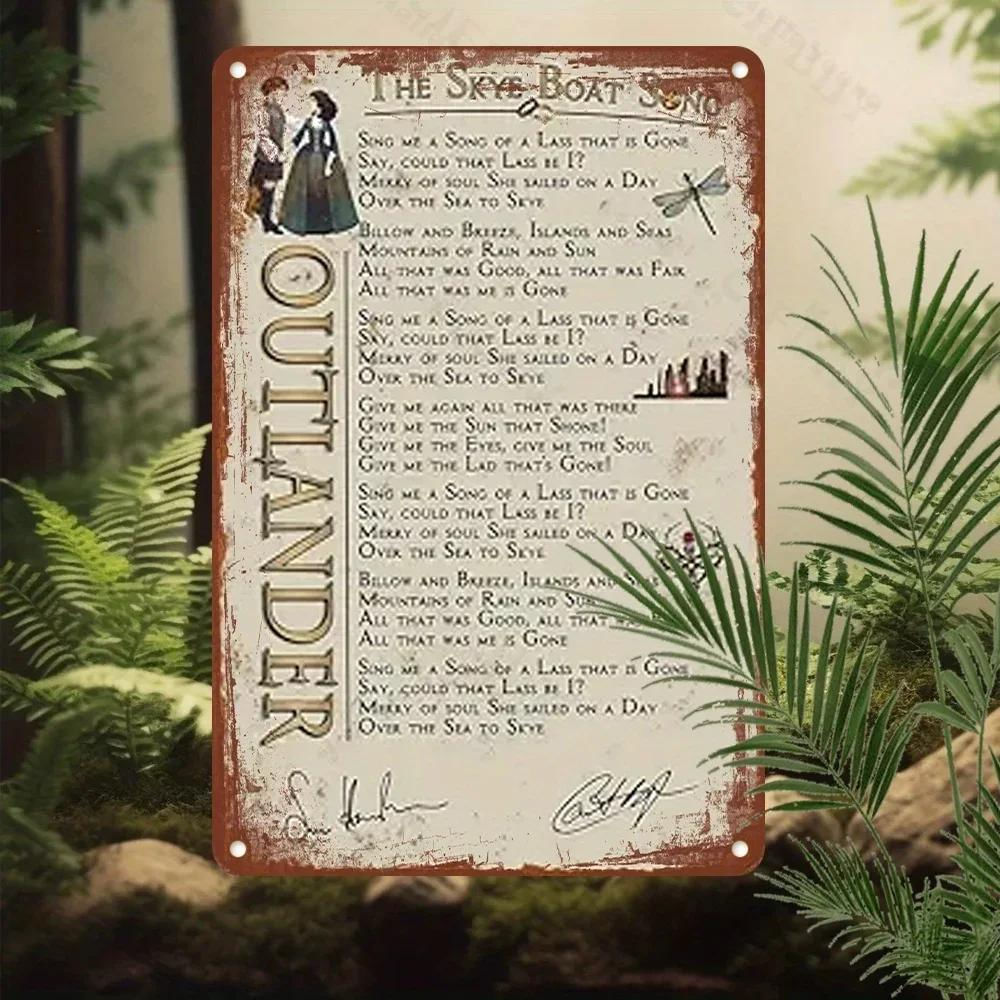 The Skye Boat Song
Sing me a Song of a Lass that is Gone
Say, could that Lass be I?
Merry of soul She sailed on a Day
Over the Sea to Skye
Billow and Breeze, Islands and Seas
Mountains of Rain and Sun
All that was Good, all that was Fair
All that was me is Gone
Sing me a Song of a Lass that is Gone
Say, could that Lass be I?
Merry of soul She sailed on a Day
Over the Sea to Skye
Give me again all that was there
Give me the Sun that Shone!
Give me the Eyes, give me the Soul
Give me the Lad that's Gone!
Sing me a Song of a Lass that is Gone
Say, could that Lass be I?
Merry of soul She sailed on a Day
Over the Sea to Skye
Billow and Breeze, Islands and
Mountains of Rain and
All that was Good, all that
All that was me is Gone
Sing me a Song of a Lass that is Gone
Say, could that Lass be I?
Merry of soul She sailed on a Day
Over the Sea to Skye
OUTLANDER